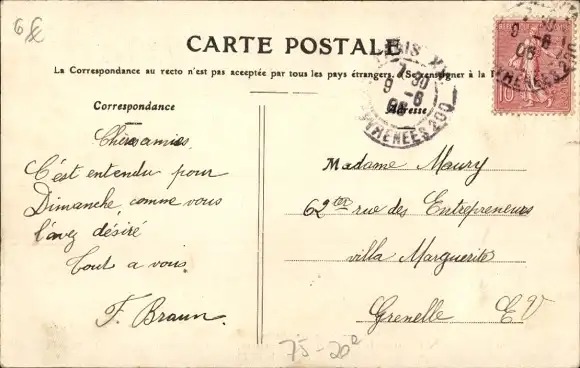 6
CARTE POSTALE
La Correspondance au recto n'est pas acceptée par tous les pays étrangers. (Se renseigner à la
Correspondance
Adresse
Chères amies,
C'est entendu pour
Dimanche, comme vous
l'avez désiré
Tout a vous
F. Braun.
Madame Maury
62 ter rue des Entrepreneurs
villa Marguerite
Grenelle E V
75-20e
9 30
9-6
06
PYRENEES 200
10